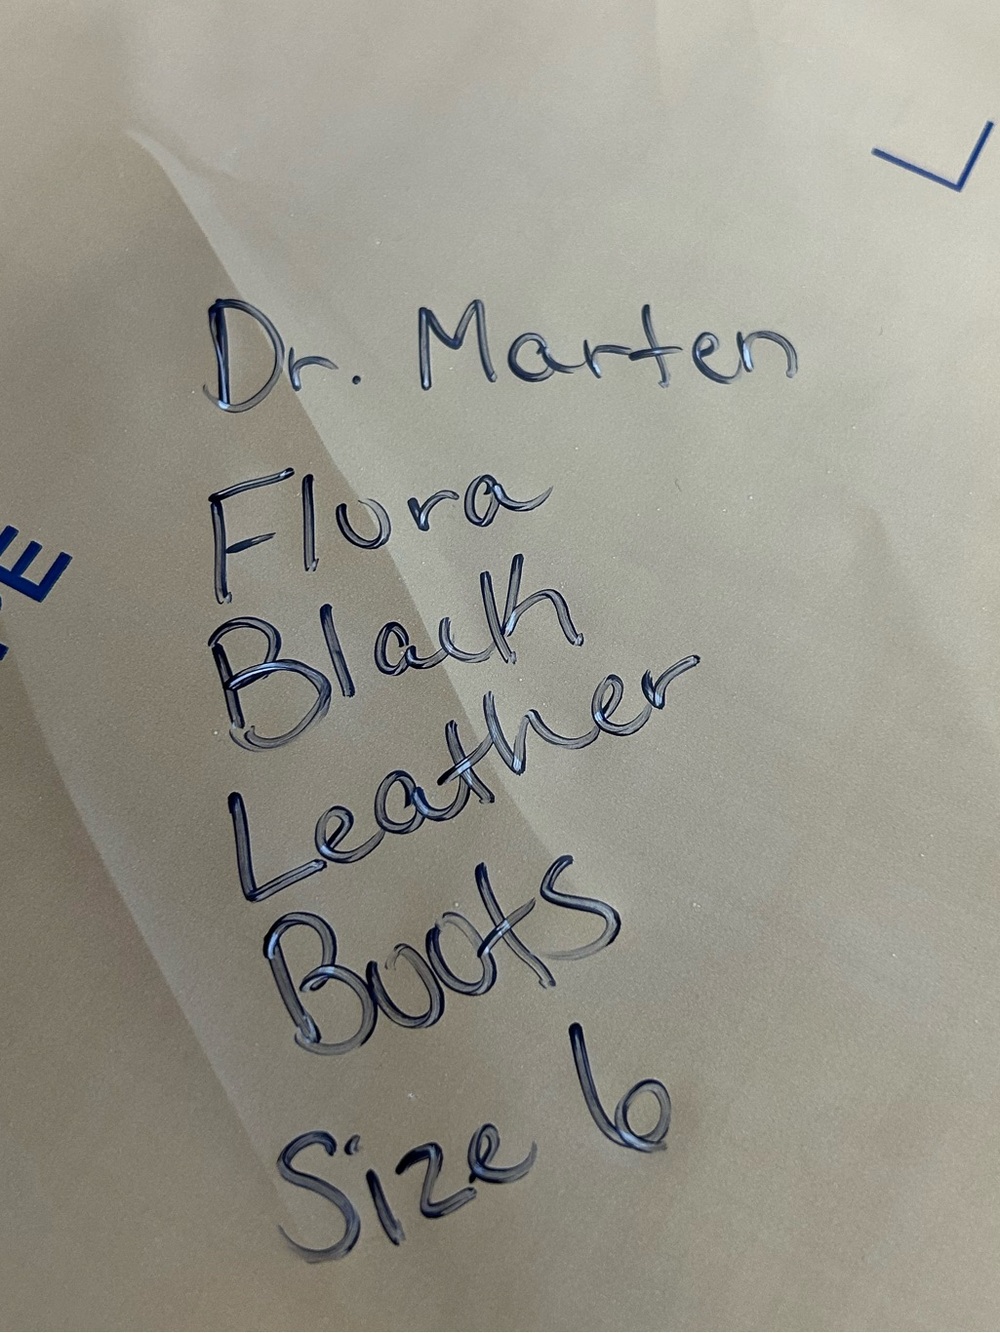 Dr. Marten
Flora
Black
Leather
Boots
Size 6